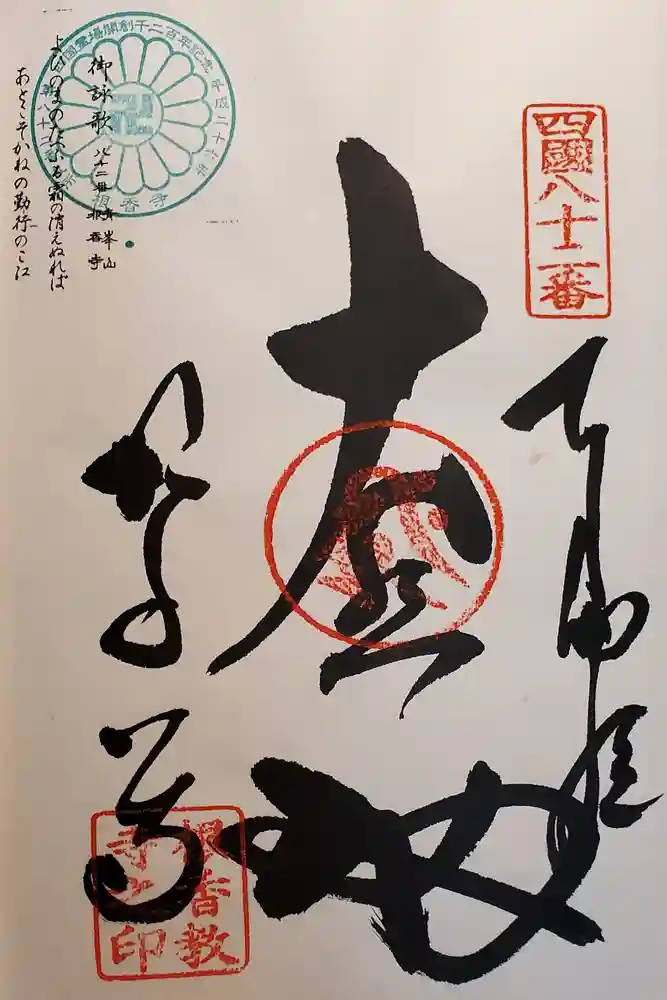 四國八十二番
奉納経
根香寺
根香教
寺之印
四国霊場開創千二百年記念
平成二十六年
根香寺
御詠歌 八十二番 青峯山
根香寺
よひのまのたへふる霜の消えぬれば
あとこそかねの勤行のこゑ